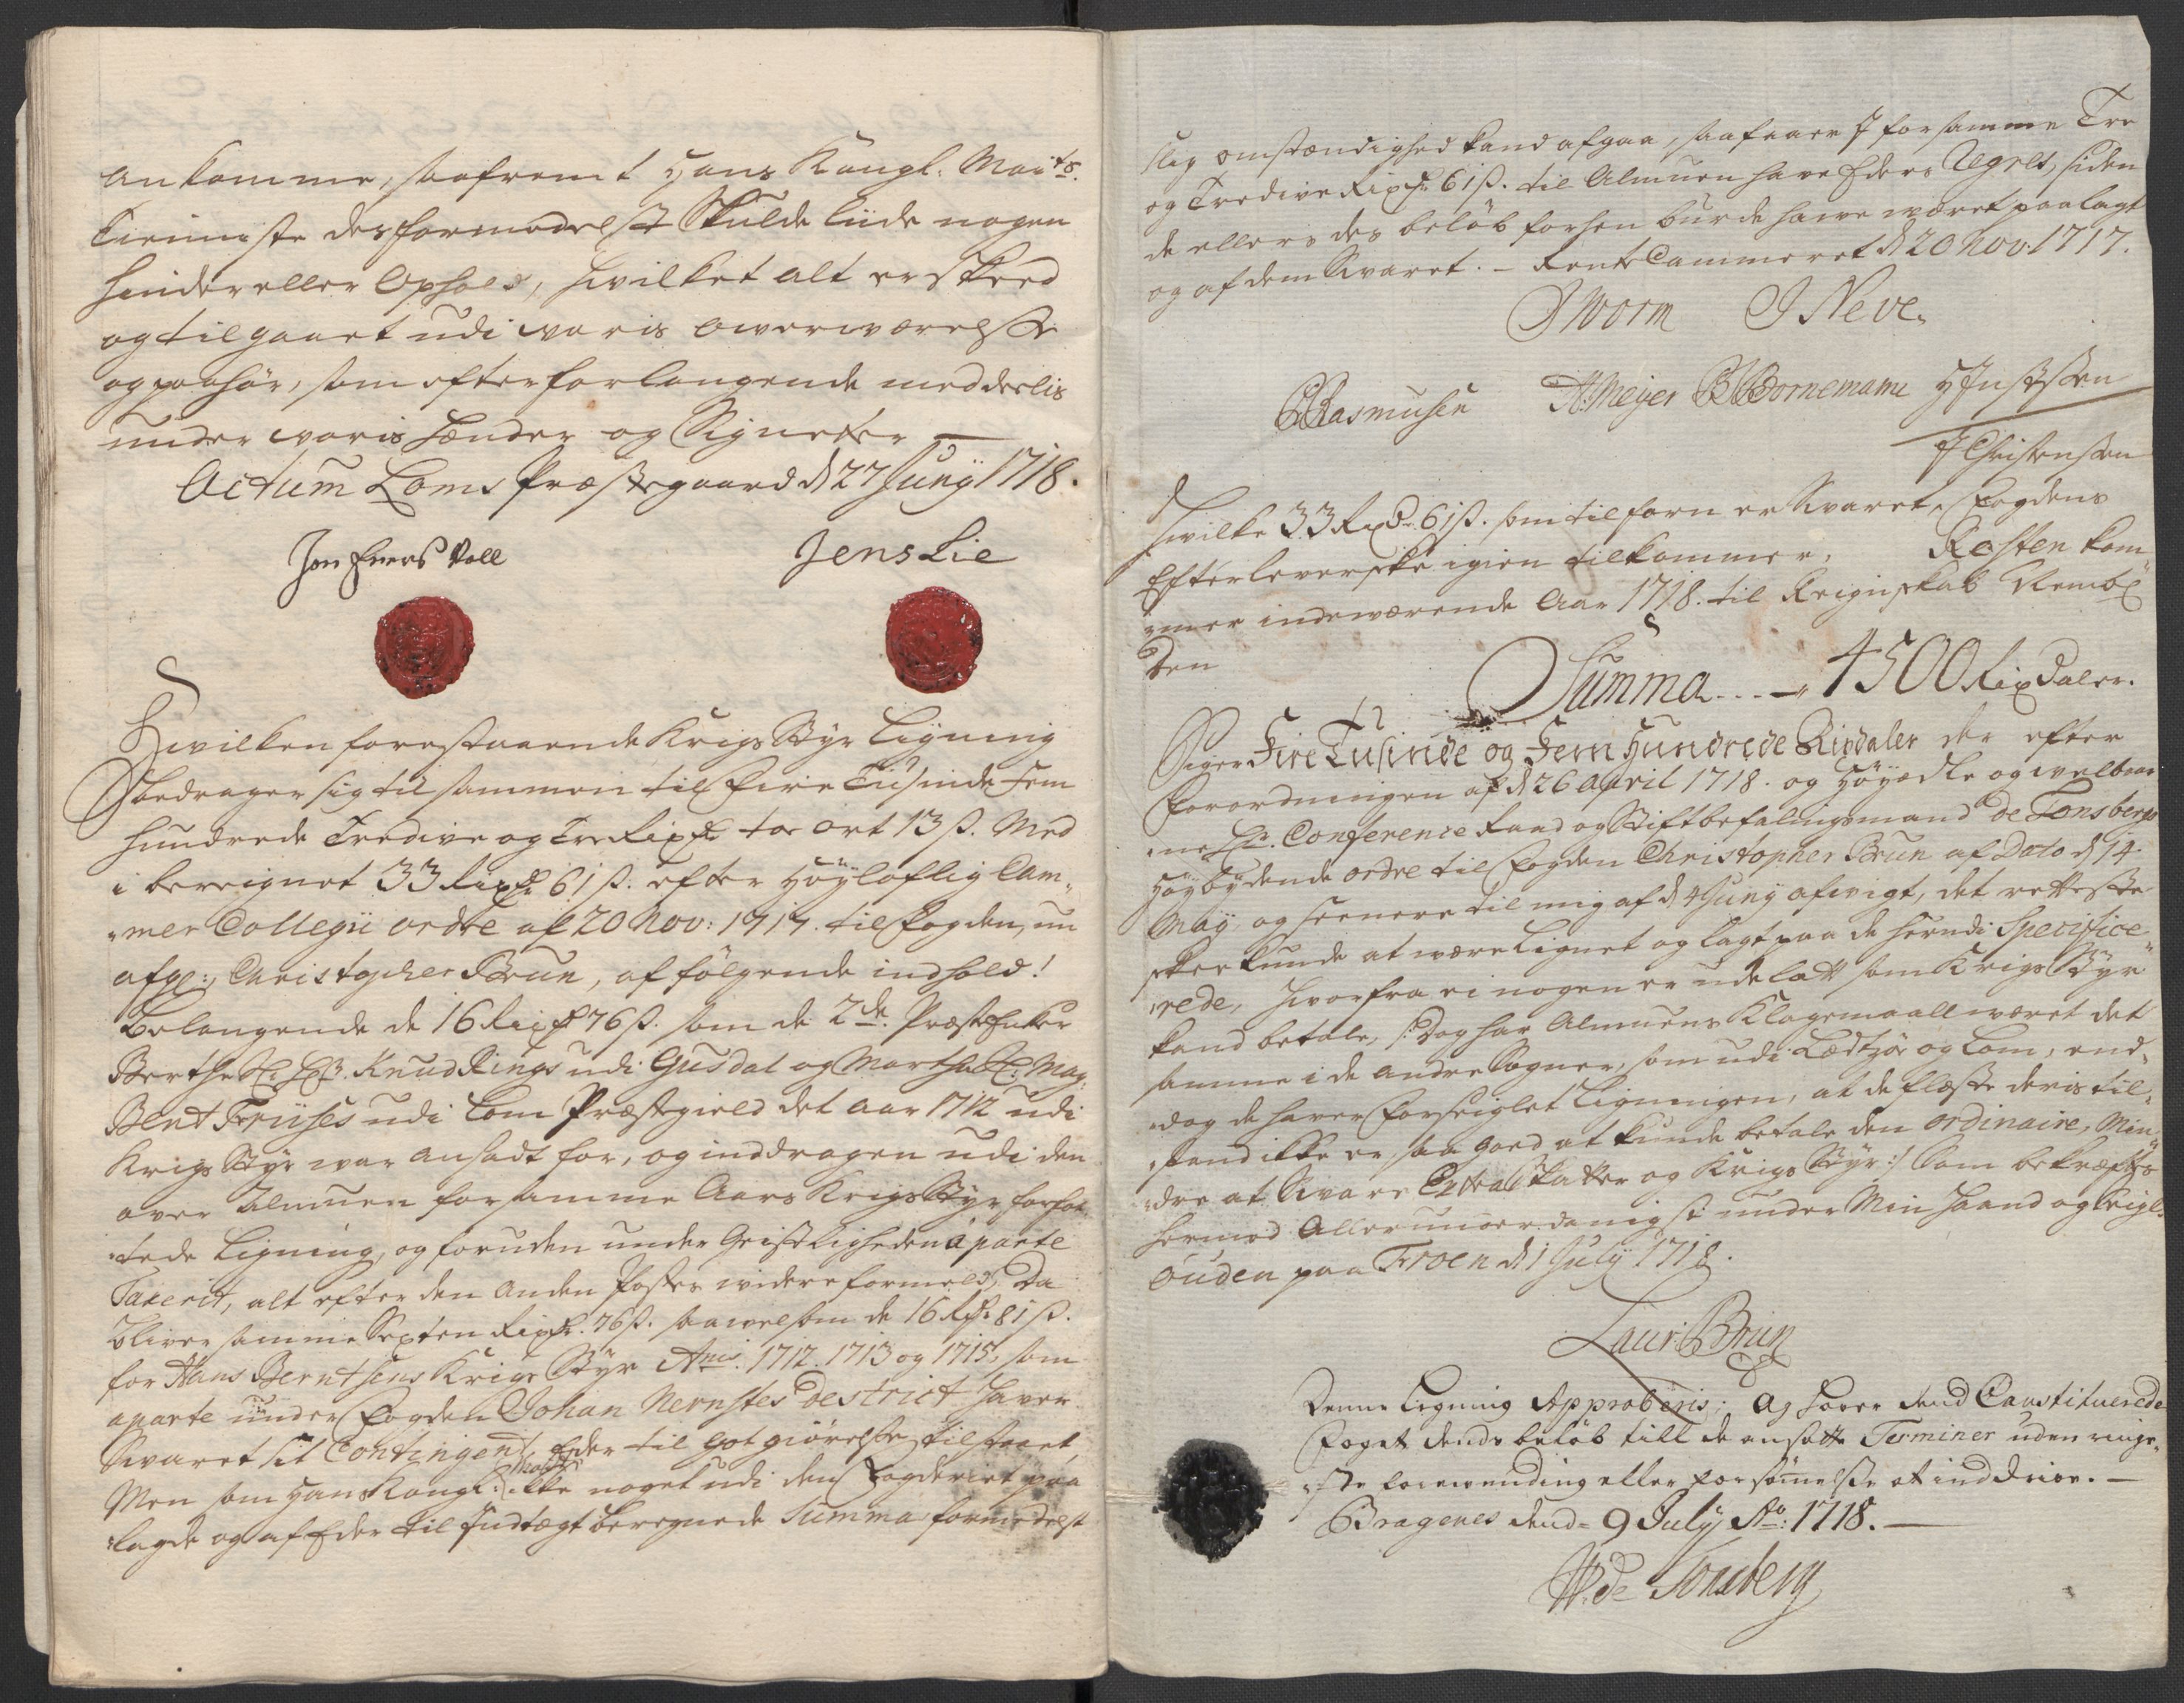 ankomme, saafremt Hans Kongl: Mayts:
Tienniste desformedelst Skulde liide nogen
hinder eller Ophold, hvilket alt er skeed
og tilgaaet udi voris Overværelse
og paahør, som efter forlangende meddeelis
under voris Hænder og Signeter
Actum Loms Præstegaard d 27 Junij 1718.
Jon Voll
Jens Lie
Hvilken forestaaende Krigs Styr Ligning
Bedrager sig til sammen til Fire Tusinde Fem
hundrede Tredive og Tre Rixdr too ort 13 ß. Med
i bereignet 33 Rixdr 61 ß. efter Høyloflig Cam„
„mer Collegii ordre af 20 Nov: 1717. til Fogden, nu
afge:, Christopher Brun, af følgende indhold!
Belangende de 16 Rixdr 76 ß. som de 2de Præste Enker
Berthe Sl: Hr. Knud Rings udi Gusdal og Martha Sl: Mag:
Bent Friises udi Lom Præstegield det Aar 1712 udi
Krigs Styr var ansadt for, og inddragen udi den
over Almuen for samme Aars Krigs Styr forfat„
„tede Ligning, og foruden under Geistligheden á parte
Taxerit, alt efter den Anden Postes videre formeld, Da
bliver samme Sexten Rixdr. 76 ß. saavelsom de 16 Rdr 81 ß.
for Hans Berntsens Krigs Styr Anis. 1712. 1713 og 1715, som
aparte under Fogden Johan Nernstes Destrict haver
Svaret sit Contingent, Eder til Got giørelse tilstaaet,
Men som Hans Kongl: Mayts ikke noget udi den Fogderiet paa
„lagde og af Eder til Indtægt beregnede Summa formedelst
slig omstændighed kand afgaa, saa faaer I for samme Tre
og Tredive Rixdr 61 ß. til Almuen have Eders Regres, siden
de ellers des beløb forhen burde have været paalagt
og af dem Svaret. - Rente Cammeret d 20 Nov. 1717.
J Worm J Neve.
C Rasmusen A: Meyer B Bornemann H Justesen
J Christensen
Hvilke 33 Rixdr 61 ß. som tilforn er Svaret, Fogdens
Efterleverske igien tilkommer. Resten kom„
„mer indeværende Aar 1718. til Reignskab Nembl
den
Summa - - - 4500 Rixdaler.
Siger Fire Tusinde og Fem Hundrede Rixdaler der efter
Forordningen af d 26 April 1718. og Høyædle og velbaar„
„ne Hr. Conference Raad og Stiftbefalingsmand de Tonsbergs
Høybydende ordre til Fogden Christopher Brun af Dato d 14
Maij, og seenere til mig af d 4 Junij afvigt, det retteste
skee kunde at være Lignet og lagt paa de herudi Specifice„
„rede, hvorfra ei nogen er udeladt som Krigs Styr
kand betale, /: Dog har Almuens Klagemaall været det
samme i de andre Sogner, som udi Lædsiør og Lom, end„
„dog de haver forseiglet Ligningen, at de fleste deris til„
„stand ikke er saa goed at kunde betale den ordinaire, Min„
„dre at Svare Extra Skatter og Krigs Styr :/ Som bekræftes
hermed Allerunderdanigst under Min Haand og Seigl.
Ouden paa Froen d 1 Julij 1718.
Laur: Brun
Denne Ligning Approberis; og haver dend Constituerede
Foget dends beløb till de ansatte Terminer uden ringe„
„ste forevending eller forsømmelse at inddrive. —
Bragenes dend 9 Julij Ao: 1718. —
W: de Tonsberg